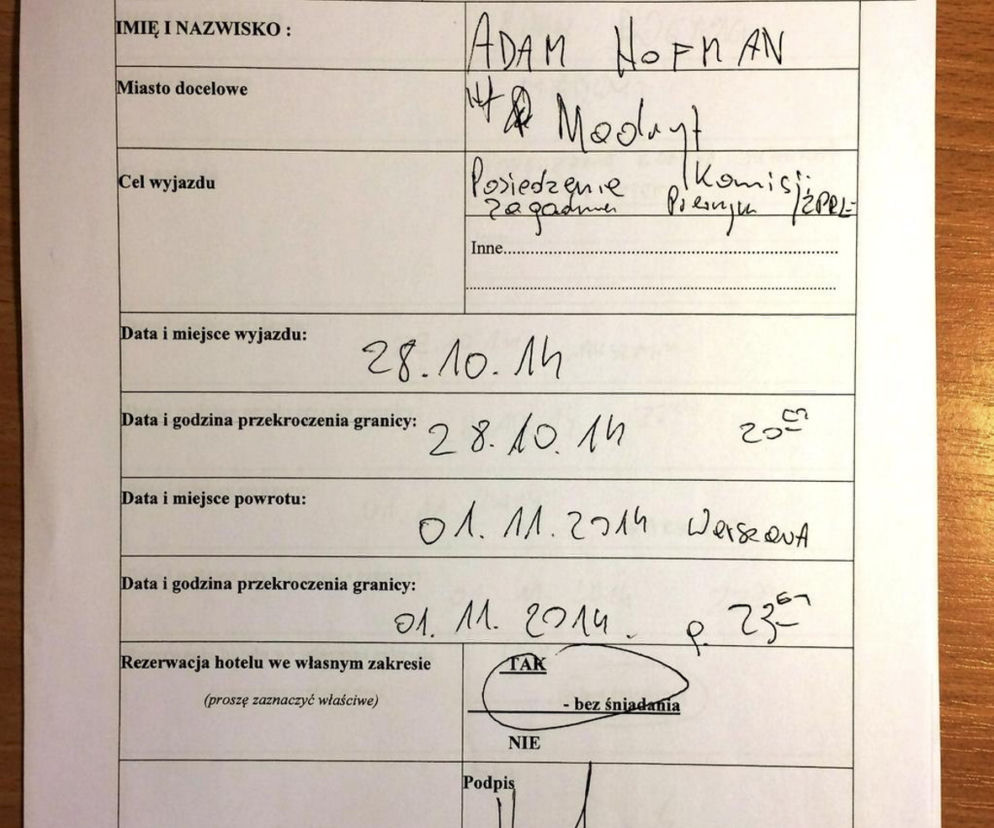 IMIĘ I NAZWISKO : ADAM HOFMAN
Miasto docelowe Madryt
Cel wyjazdu Posiedzenie Komisji
Zagadnień Prawnym ZPRE
Inne
Data i miejsce wyjazdu: 28.10.14
Data i godzina przekroczenia granicy: 28.10.14 20
Data i miejsce powrotu: 01.11.2014 WarszawA
Data i godzina przekroczenia granicy:
01.11.2014. p. 23
Rezerwacja hotelu we własnym zakresie TAK
(proszę zaznaczyć właściwe) - bez śniadania
NIE
Podpis